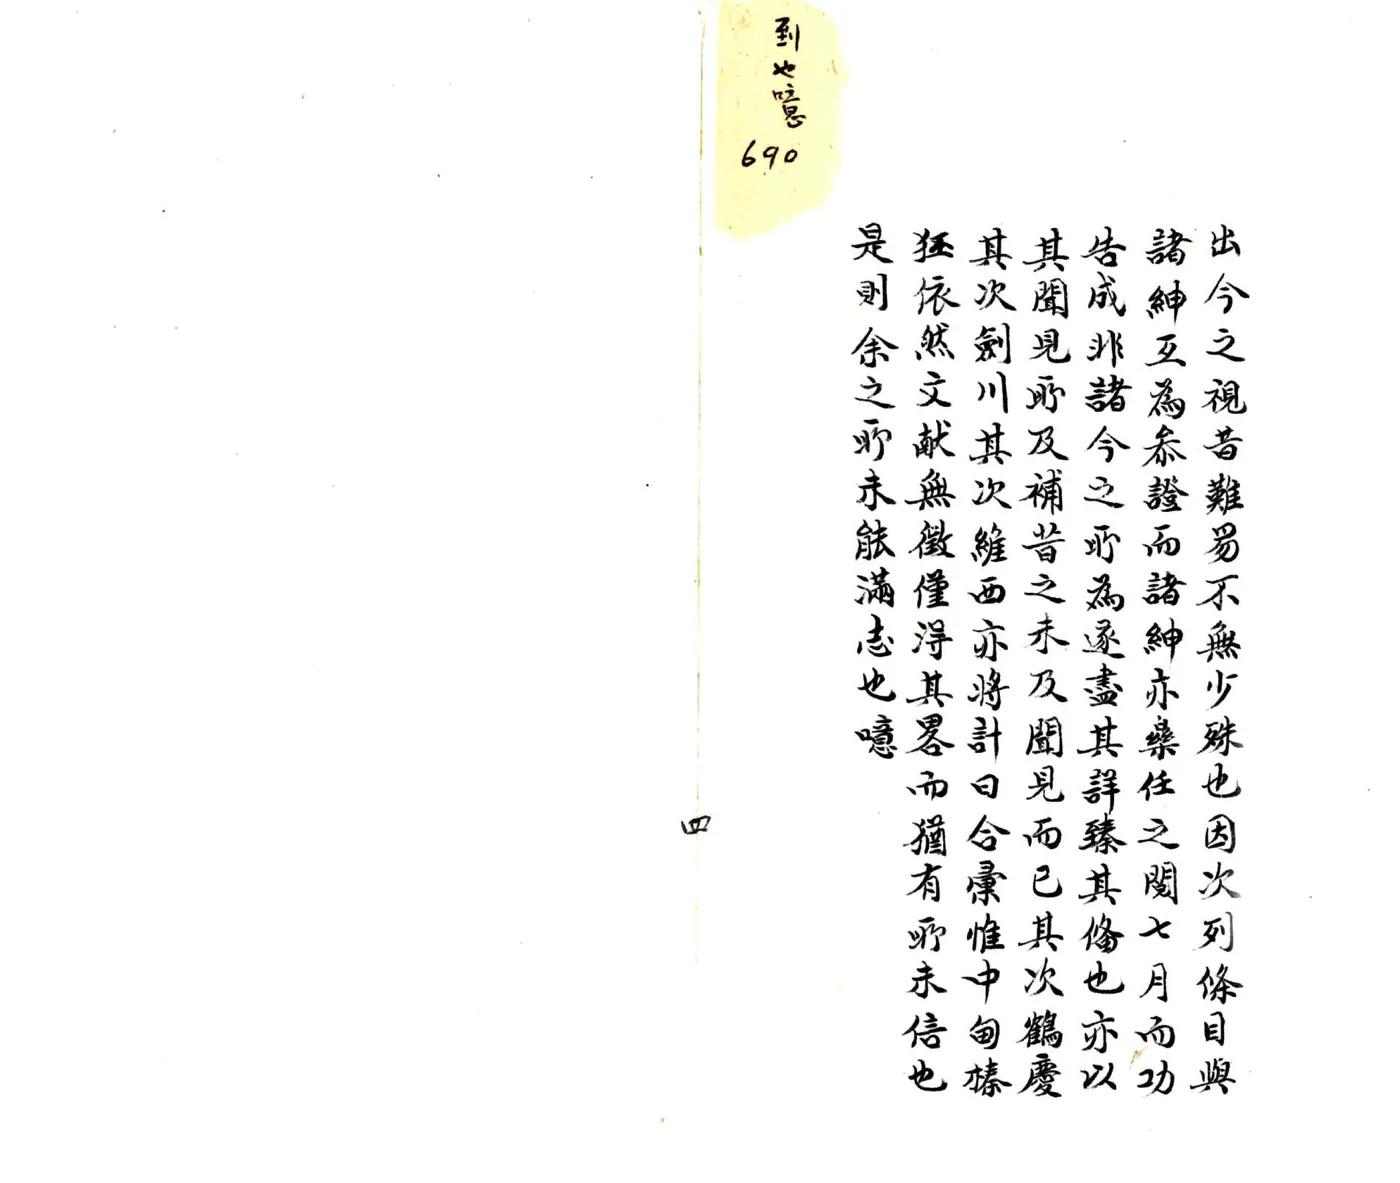 出今之視昔難易不無少殊也因次列條目與
諸紳互為參證而諸紳亦樂任之閱七月而功
告成非諸今之所為遂盡其詳臻其俻也亦以
其聞見所及補昔之未及聞見而已其次鶴慶
其次劍川其次維西亦將計日合彚惟中甸榛
狉依然文献無徵僅淂其畧而猶有所未信也
是則余之所未能滿志也噫
到也噫
690
四